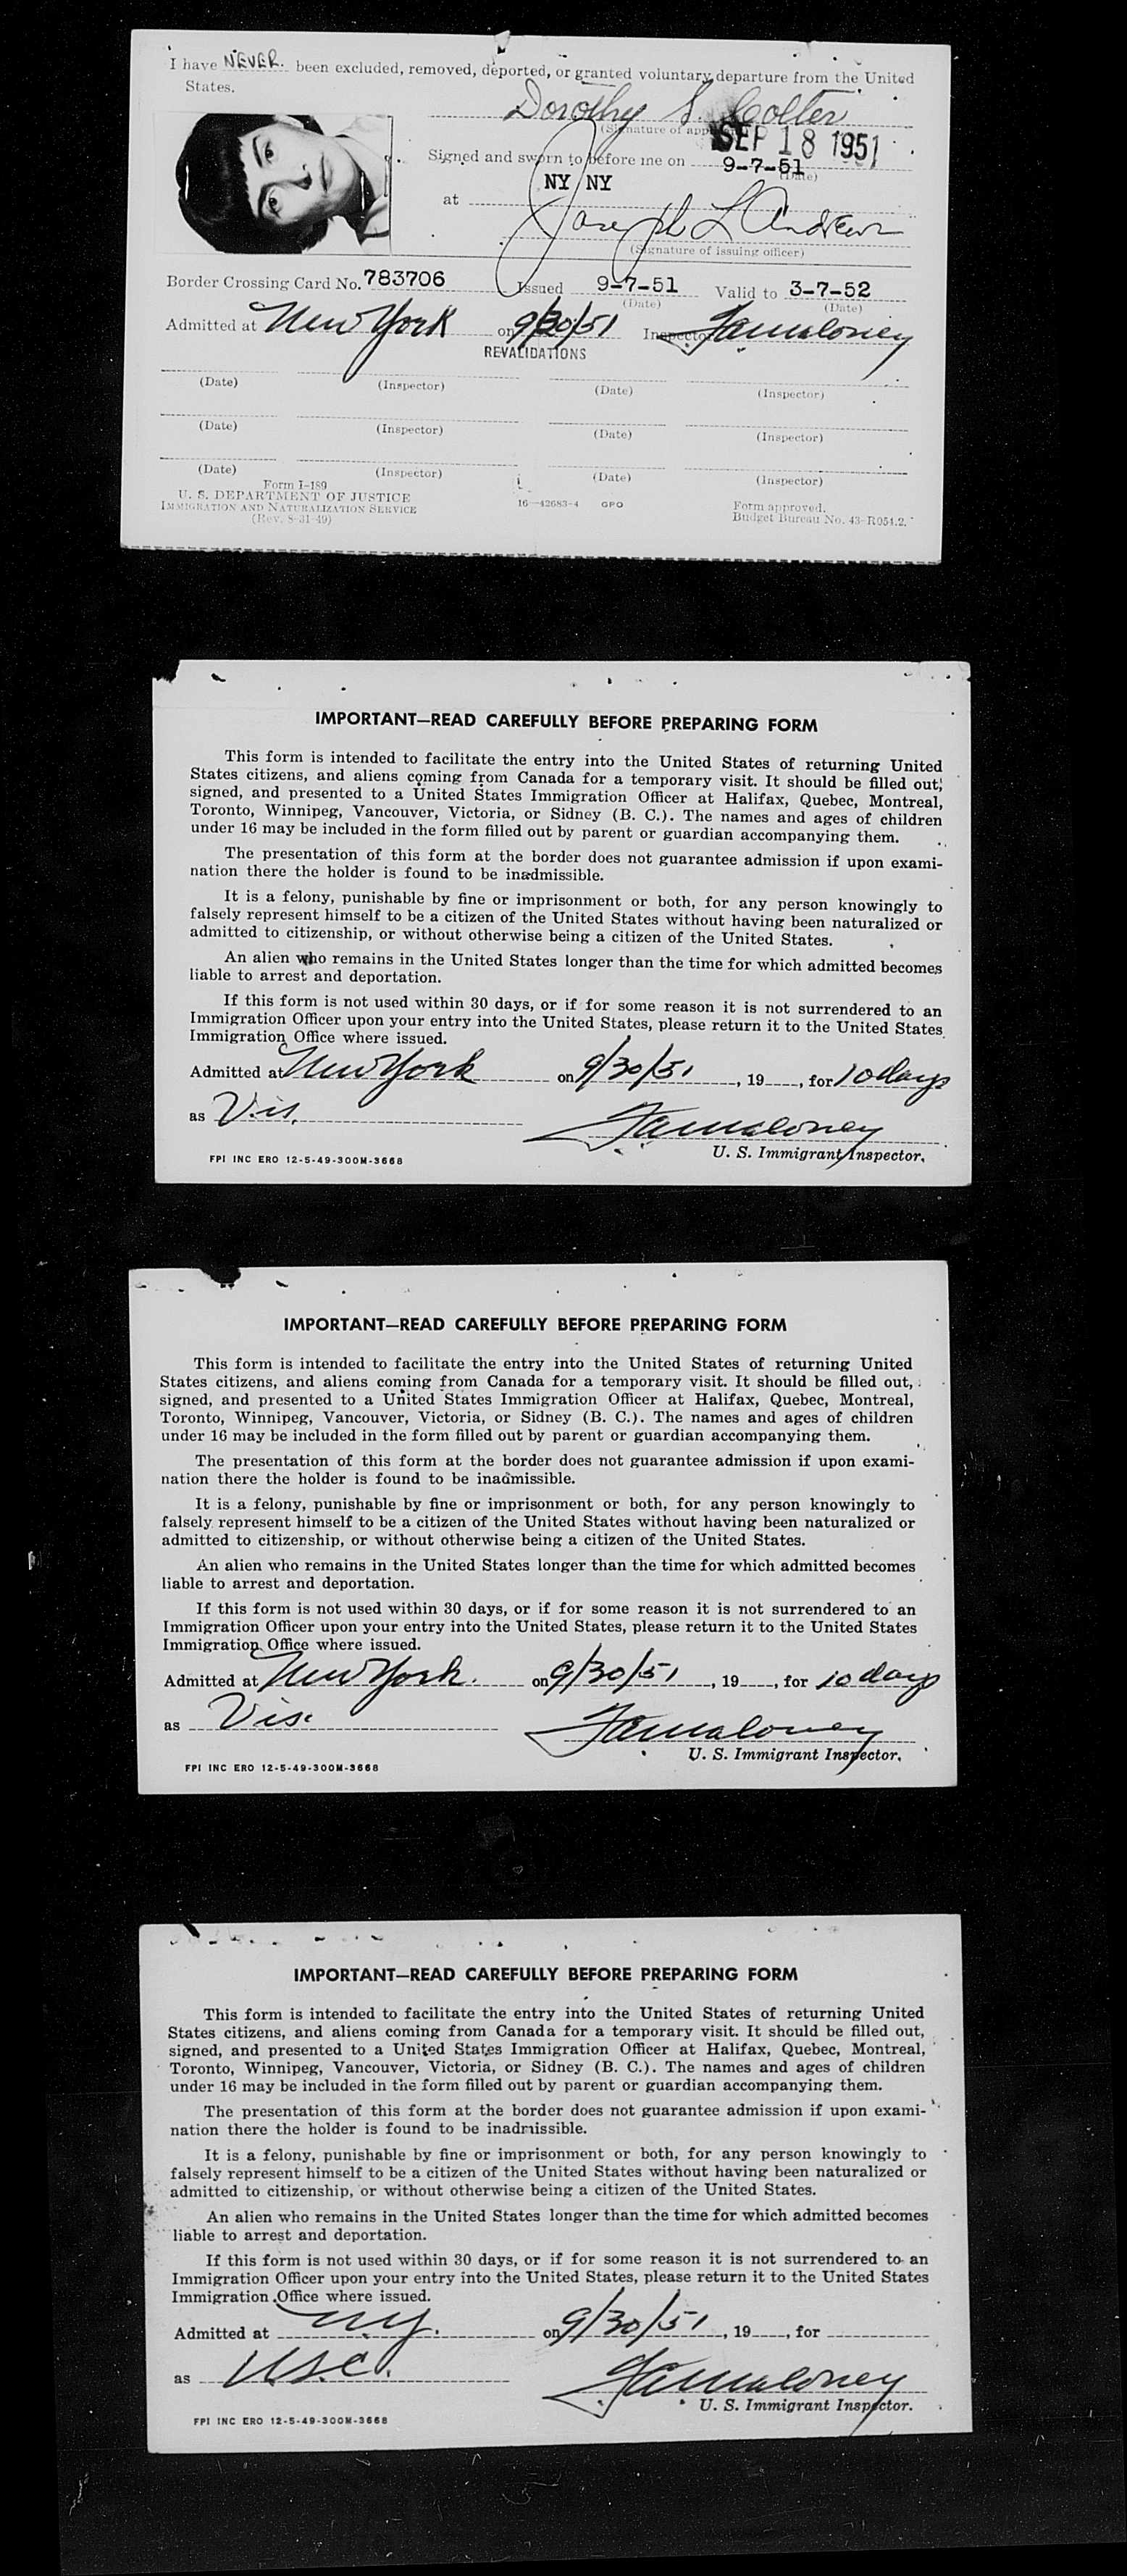 I have NEVER. been excluded, removed, deported, or granted voluntary departure from the United
States.
Dorothy S. Colter
(Signature of applicant)
SEP 18 1951
Signed and sworn to before me on 9-7-51
(Date)
at NY NY
Joseph L Andrews
(Signature of issuing officer)
Border Crossing Card No. 783706 Issued 9-7-51 Valid to 3-7-52
(Date) (Date)
Admitted at New York on 9/30/51 Inspector Famaloney
REVALIDATIONS
(Date) (Inspector) (Date) (Inspector)
(Date) (Inspector) (Date) (Inspector)
(Date) (Inspector) (Date) (Inspector)
Form I-189
U. S. DEPARTMENT OF JUSTICE
IMMIGRATION AND NATURALIZATION SERVICE
(Rev. 8-31-49)
16—42683-4 GPO
Form approved.
Budget Bureau No. 43-R051.2.
IMPORTANT—READ CAREFULLY BEFORE PREPARING FORM
This form is intended to facilitate the entry into the United States of returning United
States citizens, and aliens coming from Canada for a temporary visit. It should be filled out,
signed, and presented to a United States Immigration Officer at Halifax, Quebec, Montreal,
Toronto, Winnipeg, Vancouver, Victoria, or Sidney (B. C.). The names and ages of children
under 16 may be included in the form filled out by parent or guardian accompanying them.
The presentation of this form at the border does not guarantee admission if upon exami-
nation there the holder is found to be inadmissible.
It is a felony, punishable by fine or imprisonment or both, for any person knowingly to
falsely represent himself to be a citizen of the United States without having been naturalized or
admitted to citizenship, or without otherwise being a citizen of the United States.
An alien who remains in the United States longer than the time for which admitted becomes
liable to arrest and deportation.
If this form is not used within 30 days, or if for some reason it is not surrendered to an
Immigration Officer upon your entry into the United States, please return it to the United States
Immigration Office where issued.
Admitted at New York on 9/30/51, 19, for 10 days
as Vis.
Famaloney
U. S. Immigrant Inspector.
FPI INC ERO 12-5-49-300M-3668
IMPORTANT—READ CAREFULLY BEFORE PREPARING FORM
This form is intended to facilitate the entry into the United States of returning United
States citizens, and aliens coming from Canada for a temporary visit. It should be filled out,
signed, and presented to a United States Immigration Officer at Halifax, Quebec, Montreal,
Toronto, Winnipeg, Vancouver, Victoria, or Sidney (B. C.). The names and ages of children
under 16 may be included in the form filled out by parent or guardian accompanying them.
The presentation of this form at the border does not guarantee admission if upon exami-
nation there the holder is found to be inadmissible.
It is a felony, punishable by fine or imprisonment or both, for any person knowingly to
falsely represent himself to be a citizen of the United States without having been naturalized or
admitted to citizenship, or without otherwise being a citizen of the United States.
An alien who remains in the United States longer than the time for which admitted becomes
liable to arrest and deportation.
If this form is not used within 30 days, or if for some reason it is not surrendered to an
Immigration Officer upon your entry into the United States, please return it to the United States
Immigration Office where issued.
Admitted at New York. on 9/30/51, 19, for 10 days
as Vis.
Famaloney
U. S. Immigrant Inspector.
FPI INC ERO 12-5-49-300M-3668
IMPORTANT—READ CAREFULLY BEFORE PREPARING FORM
This form is intended to facilitate the entry into the United States of returning United
States citizens, and aliens coming from Canada for a temporary visit. It should be filled out,
signed, and presented to a United States Immigration Officer at Halifax, Quebec, Montreal,
Toronto, Winnipeg, Vancouver, Victoria, or Sidney (B. C.). The names and ages of children
under 16 may be included in the form filled out by parent or guardian accompanying them.
The presentation of this form at the border does not guarantee admission if upon exami-
nation there the holder is found to be inadmissible.
It is a felony, punishable by fine or imprisonment or both, for any person knowingly to
falsely represent himself to be a citizen of the United States without having been naturalized or
admitted to citizenship, or without otherwise being a citizen of the United States.
An alien who remains in the United States longer than the time for which admitted becomes
liable to arrest and deportation.
If this form is not used within 30 days, or if for some reason it is not surrendered to an
Immigration Officer upon your entry into the United States, please return it to the United States
Immigration Office where issued.
Admitted at N.Y. on 9/30/51, 19, for
as U.S.C.
Famaloney
U. S. Immigrant Inspector.
FPI INC ERO 12-5-49-300M-3668